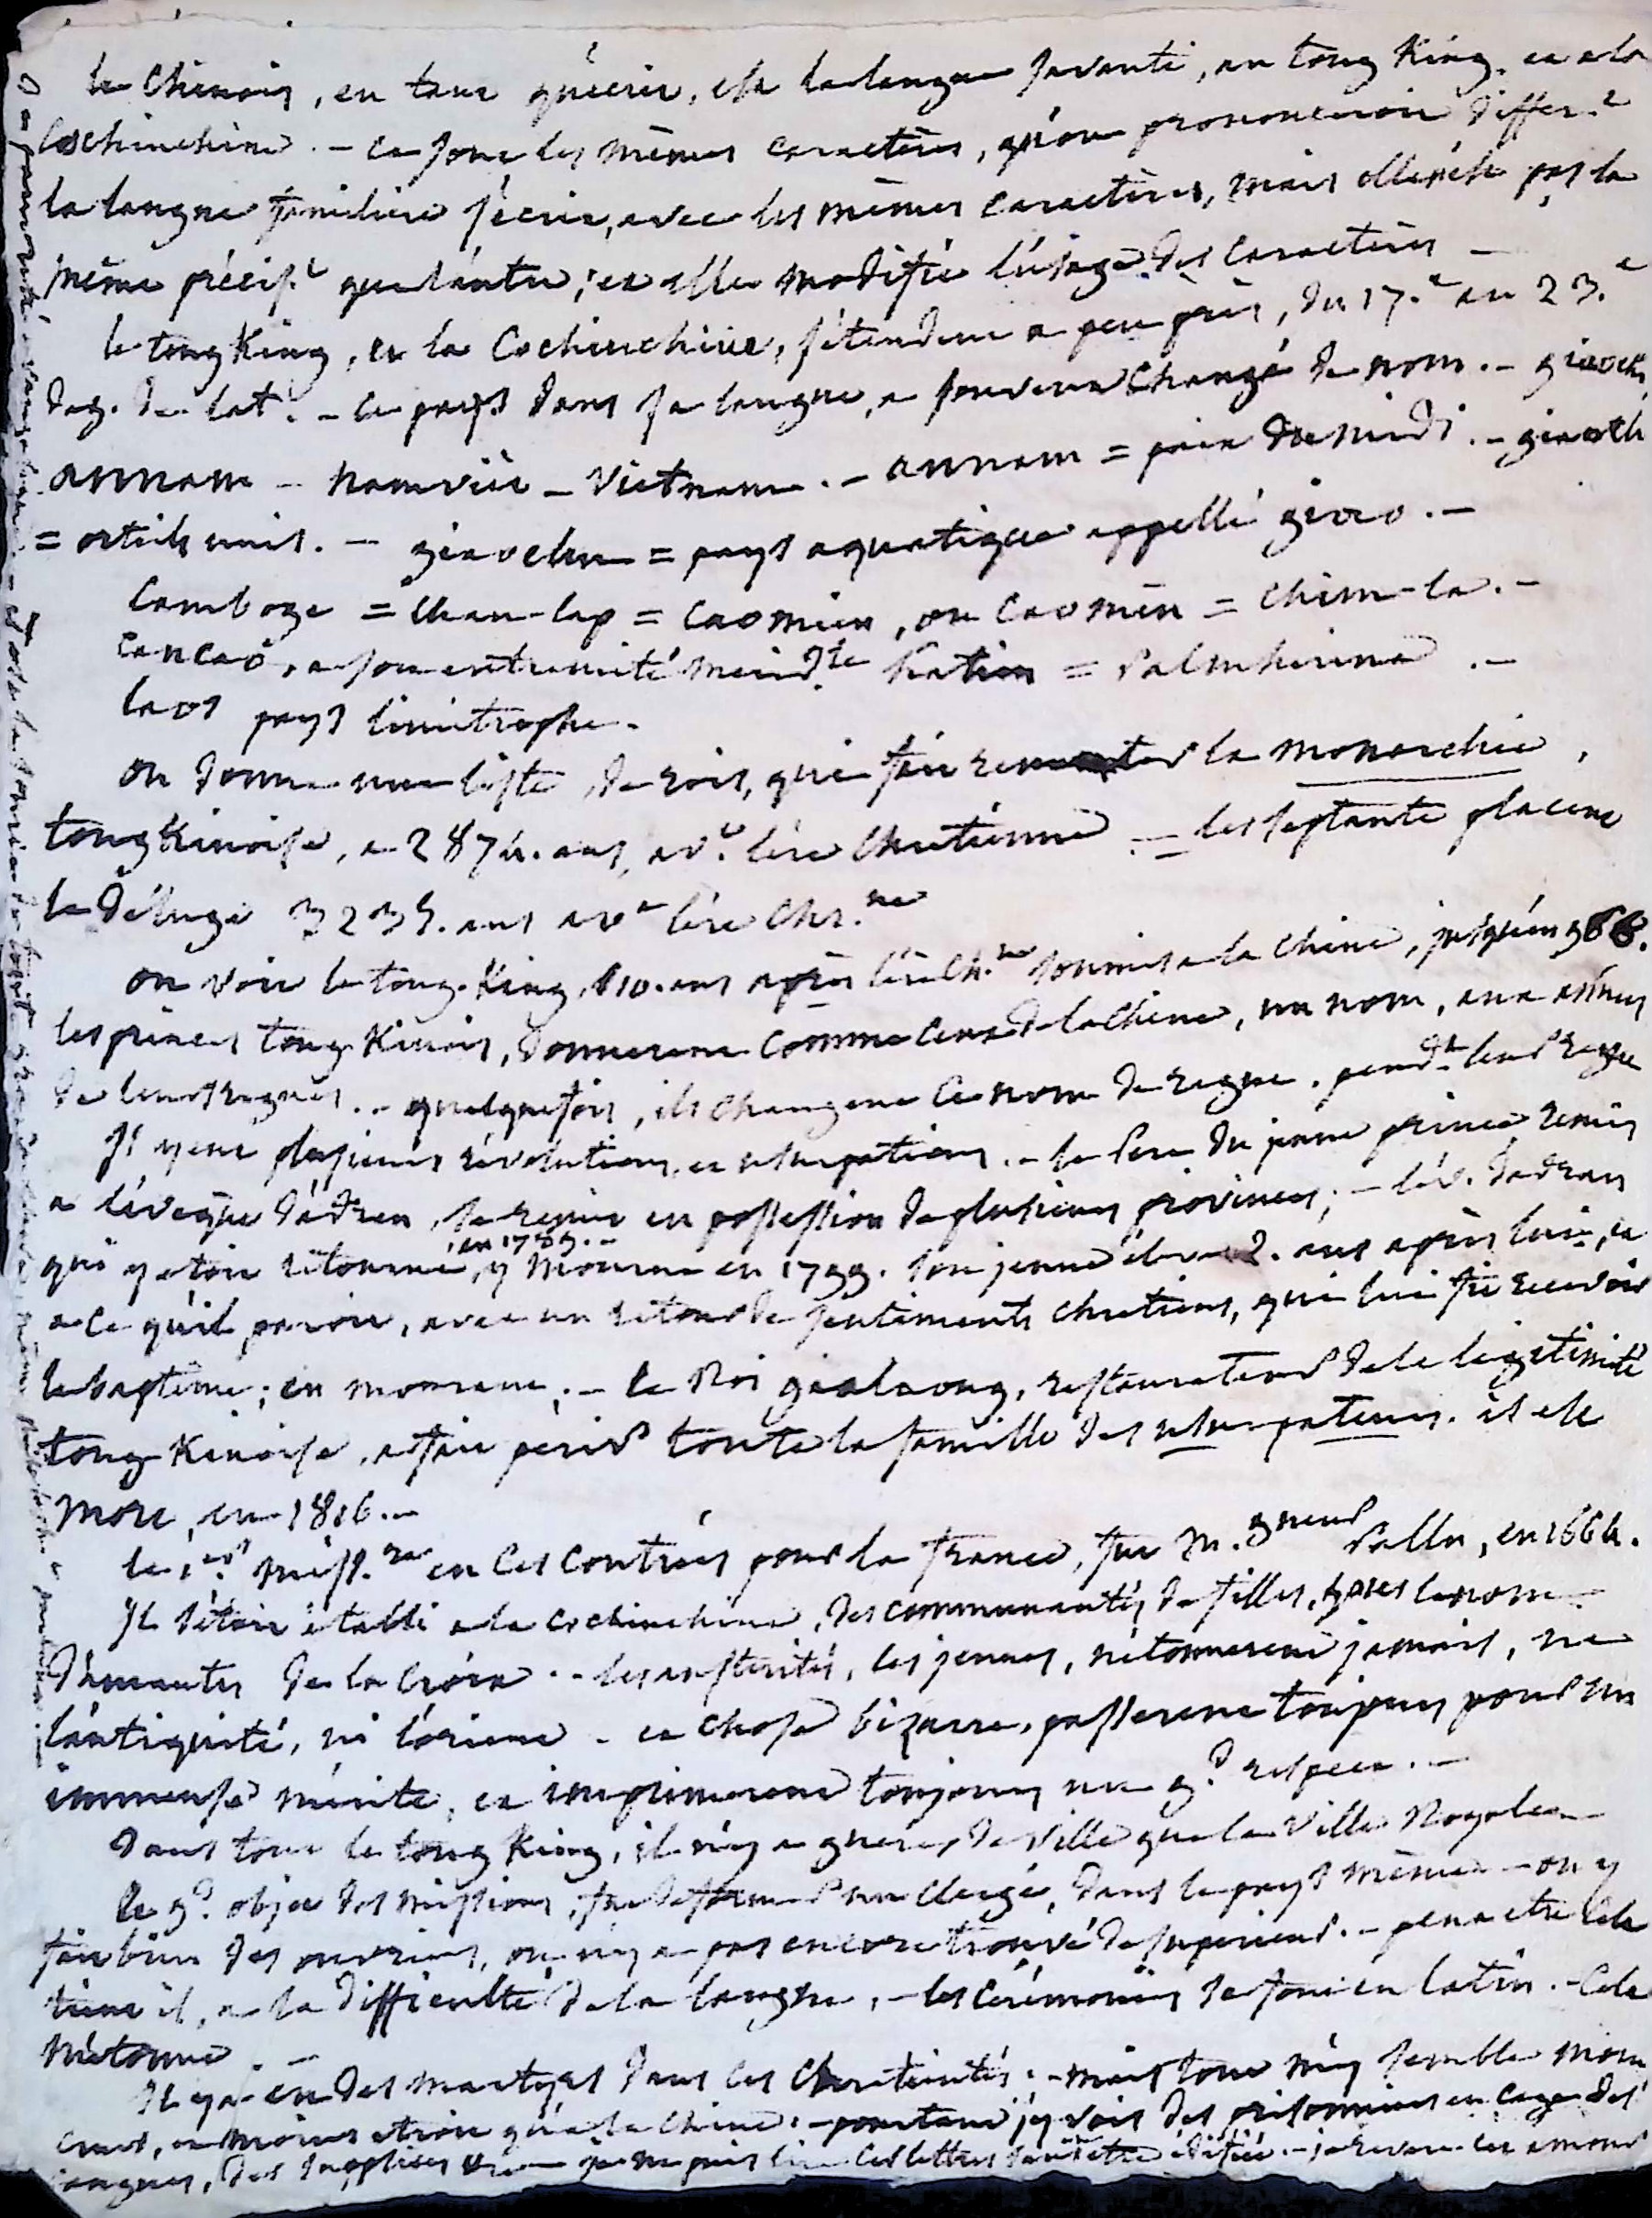 le Chinois, en tant qu'écrit, est la langue savante, au tong King, et a la
Cochinchine. - ce sont les mêmes caractères, qu'on prononceroit differ.t
la langue familière s'écrit, avec les mêmes caractères, mais elle n'est pas la
même précis.t que l'autre; et elle modifie l'usage des caractères -
le tong King, et la Cochinchine, s'étendent a peu près, du 17.e au 23.e
deg. de lat. - ce pays dans sa langue, a souvent changé de nom. - giaochi
annam - namviet - Vietnam. - annam = paix du midi. - giaochi
= orteils unis. - giaochu = pays aquatique appellé giao. -
Camboge = Chan-lap = Caomien, ou Caomen = Chim-la. -
Cancao, a son extremité merid.le hatien = Palmkerima. -
laos pays limitrophe.
on donne une liste, de rois, qui fait remonter la monarchie,
tong Kinoise, a 2874. ans, av.t l'ère chretienne - les septante placent
le Déluge 3235. ans av.t l'ère chr.ne
on voit le tong-King, 110. ans après l'ère ch.ne soumis a la Chine, jusqu'en 968.
les princes tong-Kinois, donnerent comme ceux de la Chine, un nom, aux années
de leurs regnes. - quelquefois, ils changent ce nom de regne, pend.t leur regne
Il y eut plusieurs révolutions, et usurpations. - le Pere du jeune prince remis
a l'évêque d'adran, se remit en possession de plusieurs provinces; - l'év. d'adran
en 1789. -
qui y etoit retourné, y mourut en 1799. son jeune élève 2. ans après lui, et
a ce qu'il paroit, avec un retour de sentiments chretiens, qui lui fit recevoir
le baptême; en mourant; - le Roi gialaong, restaurateur de la légitimité
tong-Kinoise, a fait périr toute la famille des usurpateurs. il est
mort, en 1816. -
le 1.er miss.re en ces contrées pour la france, fut M.gneur Pallu, en 1664.
Il s'étoit établi a la cochinchine, des communautés de filles, sous le nom
d'amantes de la Croix. - les austerités, les jeunes, n'étonnerent jamais, ni
l'antiquité, ni l'orient - et chose bizarre, passerent toujours pour un
immense mérite, et imprimerent toujours un g.d respect. -
Dans tout le tong King, il n'y a gueres de ville que la ville Royale -
le g.d objet des missions, fut de former un clergé, dans le pays même - on y
fait bien des ouvriers, on n'y a pas encore trouvé de superieur. - peut etre cela
tient il, a la difficulté de la langue, - les cérémonies se font en latin. - Cela
m'étonne. -
Il y a eu des martyrs dans ces Chretientés; - mais tout m'y semble moins
cruel, et moins etroit qu'a la Chine. - pourtant j'y vois des prisonniers en cage des
cangues, des supplices je ne puis lire ces lettres sans etre édifié. -